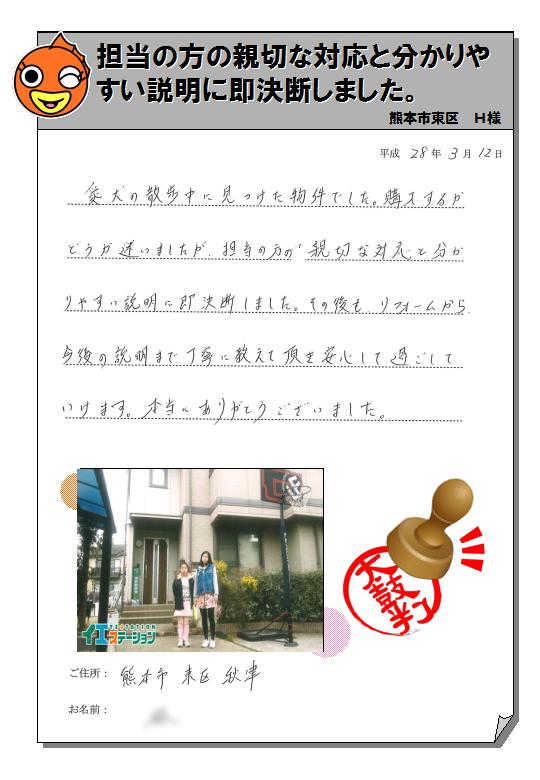 担当の方の親切な対応と分かりや
すい説明に即決断しました。
熊本市東区　H様
平成 28年 3月 12日
愛犬の散歩中に見つけた物件でした。購入するか
どうか迷いましたが、担当の方の親切な対応と分か
りやすい説明に即決断しました。その後も、リフォームから
今後の説明まで丁寧に教えて頂き安心して過ごして
いけます。本当にありがとうございました。
YESTATION
イエステーション
太鼓判
ご住所： 熊本市 東区 秋津
お名前：